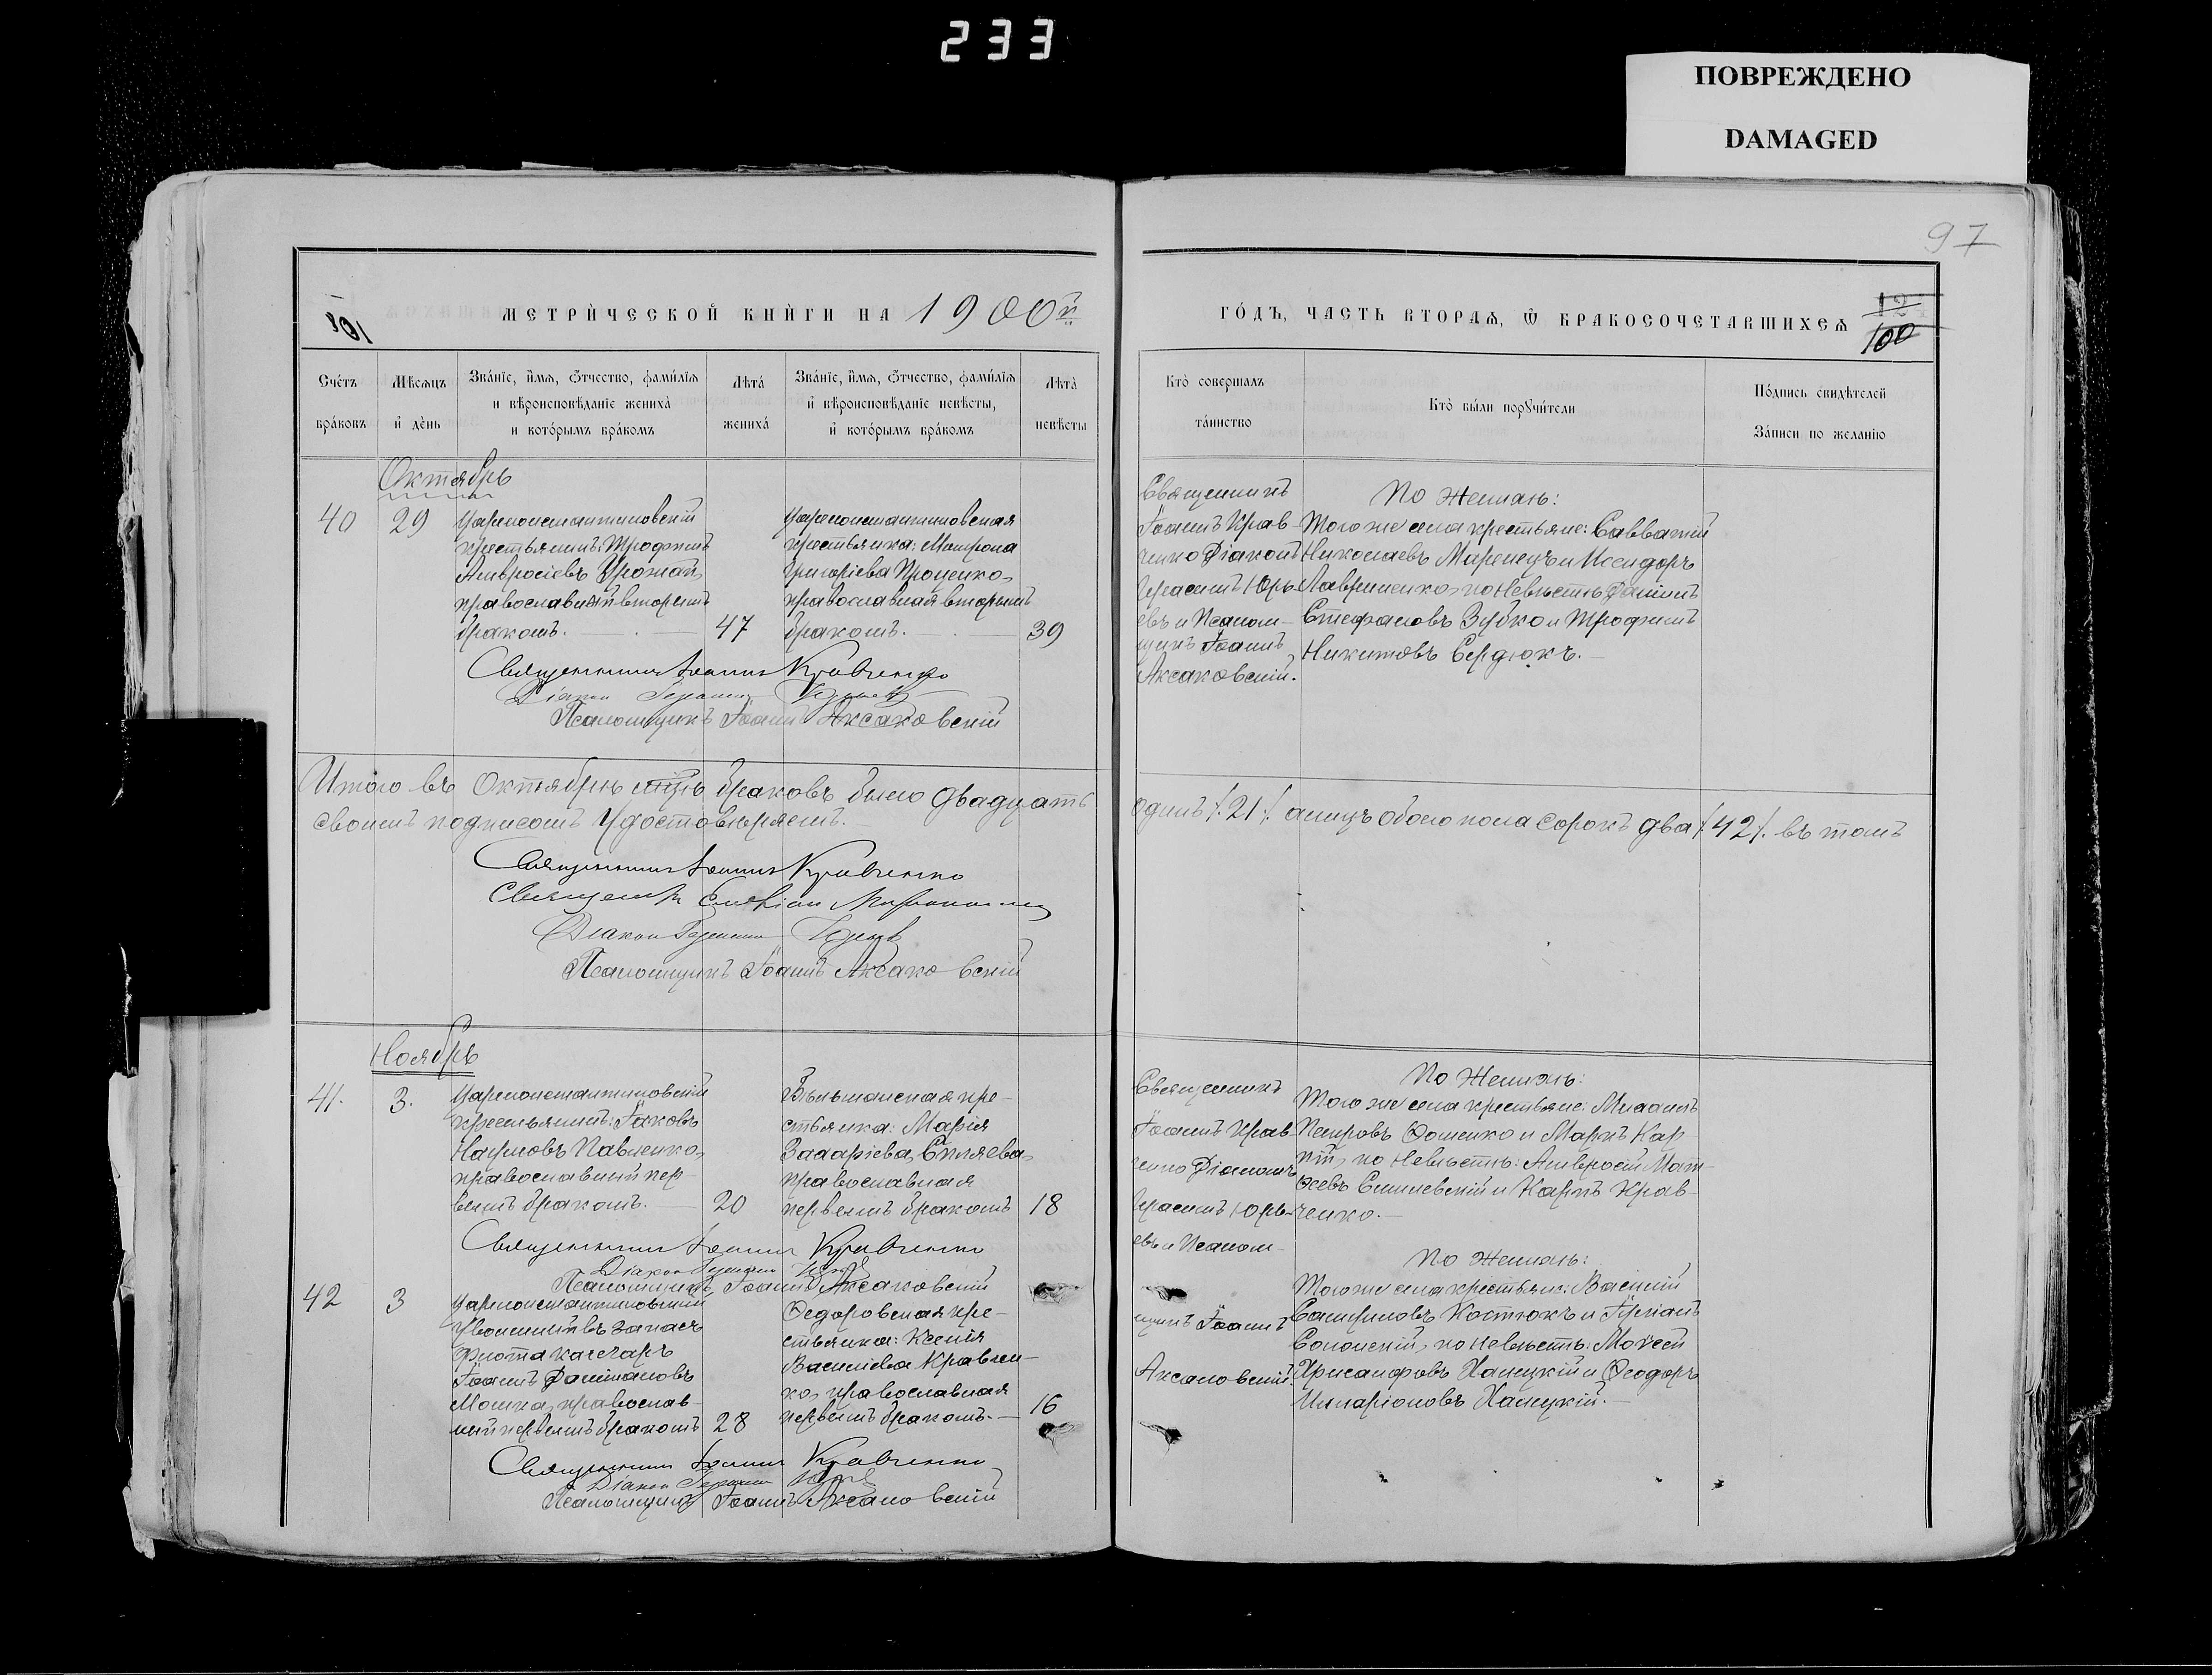 233
ПОВРЕЖДЕНО
DAMAGED
97
101
МЕТРИ́ЧЕСКОЙ КНИ́ГИ НА 1900й
ГО́ДЪ, ЧАСТЬ ВТОРАѦ, Ѡ БРАКОСОЧЕТАВШИХСѦ
12
100
Сче́тъ
бра́ковъ
Мѣсяцъ
и де́нь
Зва́нїе, и́мѧ, ѻ́тчество, фами́лїѧ
и вѣроисповѣданїе жениха̀
и кото́рымъ бра́комъ
Лѣта́
жениха́
Зва́нїе, и́мѧ, ѻ́тчество, фами́лїѧ
и вѣроисповѣданїе невѣсты,
и кото́рымъ бра́комъ
Лѣта̀
невѣсты
Кто̀ совершалъ
та́инство
Кто̀ бы́ли порꙋчи́тели
По́дпись свидѣтелей
За́писи по желанїю
Октябрь
40
29
Цареконстантиновскій
крестьянинъ: Трофимъ
Амвросіевъ Урожай,
православный вторымъ
бракомъ.
47
Цареконстантиновская
крестьянка: Матрона
Григоріева Проценко,
православная вторымъ
бракомъ.
39
Священникъ
Іоаннъ Крав-
ченко Діаконъ
Герасимъ Юрь-
евъ и Псалом-
щикъ Іоаннъ
Аксаковскій.
По Женихѣ:
Того же села крестьяне: Савватій
Николаевъ Маренецъ и Исидоръ
Лавриненко, по Невѣстѣ Даніилъ
Стефановъ Зубко и Трофимъ
Никитовъ Сердюкъ.
Священникъ Іоаннъ Кравченко
Діаконъ Герасимъ Юрьевъ
Псаломщикъ Іоаннъ Аксаковскій
Итого въ Октябрѣ мцѣ браковъ было двадцать
одинъ /.21/. а лицъ обоего пола сорокъ два /.42/. въ томъ
своимъ подписомъ удостовѣряемъ.
Священникъ Іоаннъ Кравченко
Священникъ
Діаконъ Герасимъ Юрьевъ
Псаломщикъ Іоаннъ Аксаковскій
Ноябрь
41.
3.
Цареконстантиновскій
крестьянинъ: Іаковъ
Наумовъ Павленко,
православный пер-
вымъ бракомъ.
20
Бѣльманская кре-
стьянка: Марія
Захаріева, Скляева,
православная
первымъ бракомъ
18
Священникъ
Іоаннъ Крав-
ченко Діаконъ
Герасимъ Юрь-
евъ и Псалом-
щикъ Іоаннъ
Аксаковскій.
По Женихѣ:
Того же села крестьяне: Михаилъ
Петровъ Фоменко и Маркъ Кар-
по Невѣстѣ: Амвросій Мат-
ѳеевъ и Карпъ Крав-
ченко.
Священникъ Іоаннъ Кравченко
Діаконъ Герасимъ Юрьевъ
Псаломщикъ Іоаннъ Аксаковскій
42
3
Цареконстантиновскій
уволенный въ запасъ
флота кочегаръ
Іоаннъ Даміановъ
Мошка, православ-
ный первымъ бракомъ
28
Ѳедоровская кре-
стьянка: Ксенія
Василіева Кравчен-
ко, православная
первымъ бракомъ.
16
По Женихѣ:
Того же села крестьяне: Василій
Костюкъ и
Солонскій, по невѣстѣ: Моѵсей
Хрисанфовъ Халецкій и Ѳеодоръ
Иларіоновъ Халецкій.
Священникъ Іоаннъ Кравченко
Діаконъ Герасимъ Юрьевъ
Псаломщикъ Іоаннъ Аксаковскій